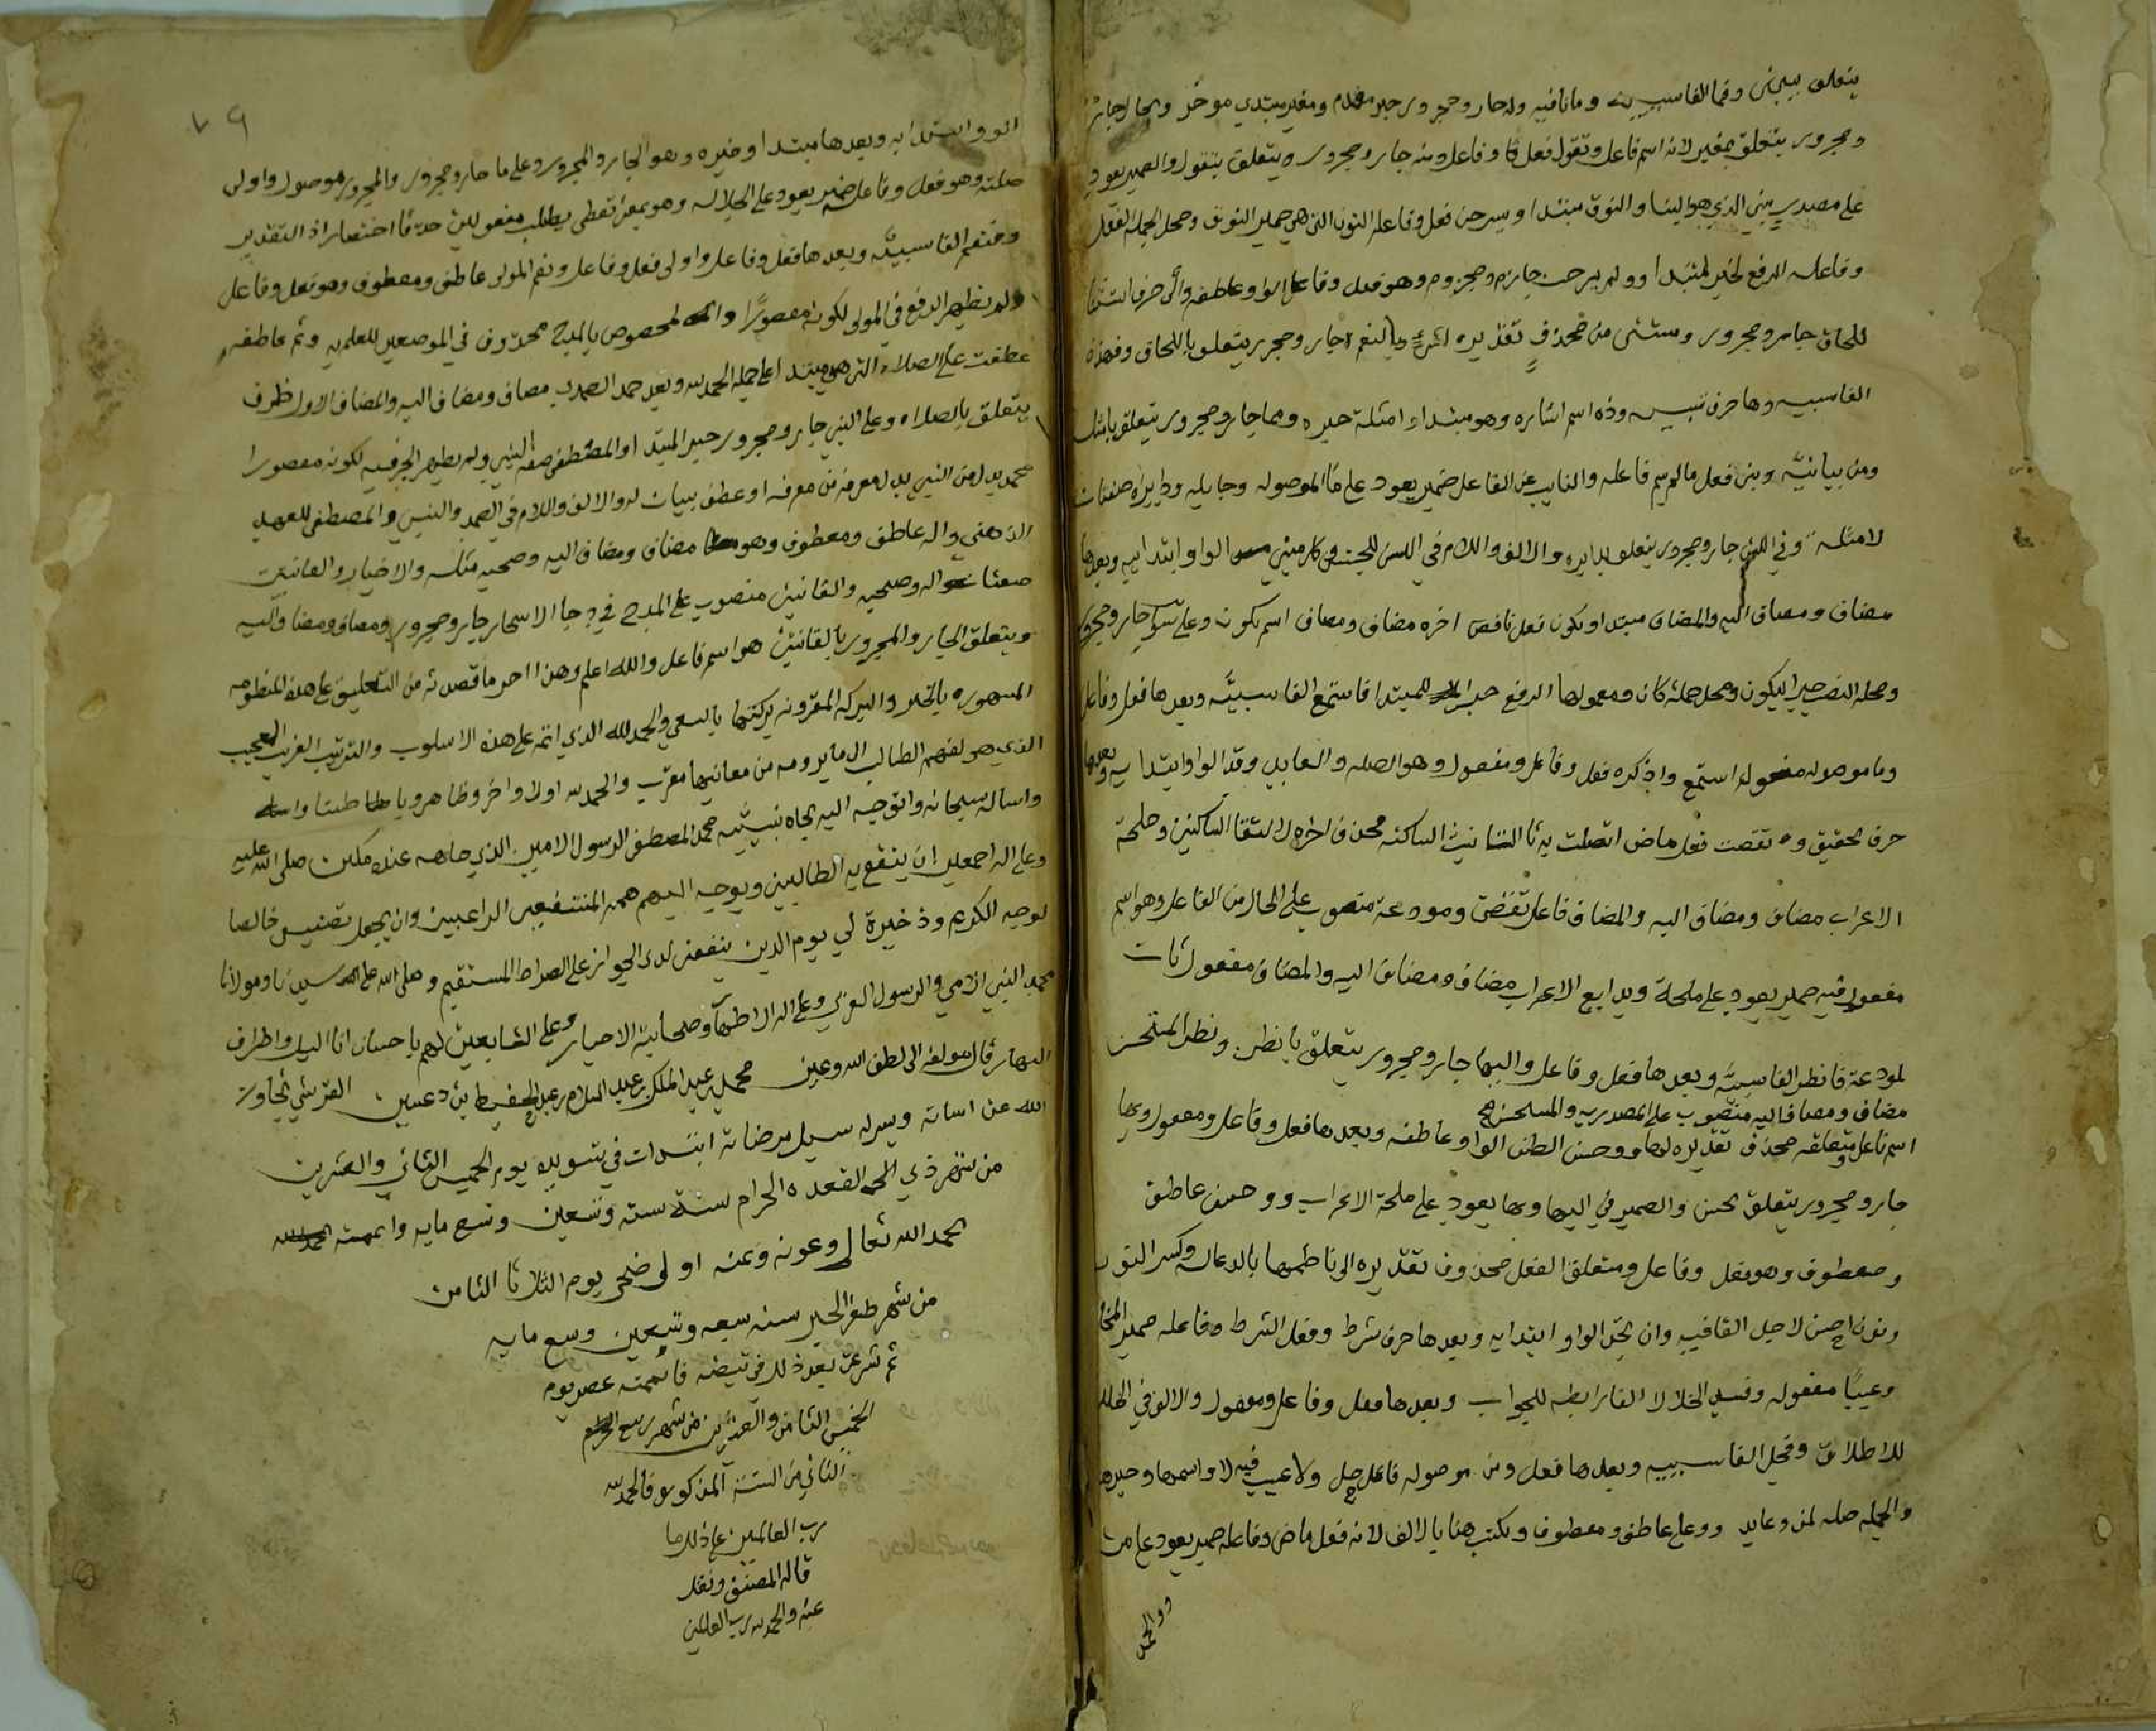 يتعلق ببنى وقما الفا سببيه وما نافيه وله جار ومجرور خبر مقدم ومغير مبتدى موخر وبحال جار
ومجرور يتعلق بمغير لانه اسم فاعل وتقول فعل وفاعل ومنه جار ومجرور ويتعلق بتقول والضمير يعود
على مصدر بني الذي هو البنا والنون مبتدا ويسرحن فعل وفاعله النون التي هي ضمير النون ومحل الجملة الفعل
وفاعله الرفع لخبر المبتدا وولم يبرحن جازم ومجزوم وهو فعل وفاعل الواو عاطفه والى حرف استثنا
للحاق جار ومجرور ومستثنى من محذوف تقديره جار ومجرور يتعلق باللحاق وفهذه
الفا سببيه وها حرف تنبيه وذه اسم اشاره وهو مبتداء امثلة خبره ومما جار ومجرور يتعلق بامثلة
ومن بيانيه وبنى فعل مالم يسم فاعله والنايب عن الفاعل ضمير يعود على ما الموصوله وجايله ودايره صفتان
لامثلة وفي اللسن جار ومجرور يتعلق بدايره والالف واللام في اللسن للجنس وكل مبني الواو ابتدائيه وبعدها
مضاف ومضاف اليه والمضاف مبتدا ويكون فعل ناقص اخره مضاف ومضاف اسم يكون وعلى سوا جار ومجرور
ومحله النصب خبر ليكون ومحل جملة كان ومعمولها الرفع خبر للمبتدا فاستمع الفا سببيه وبعدها فعل وفاعل
وما موصوله مفعوله استمع واذكره فعل وفاعل ومفعول وهو الصله والعايد وقد الواو ابتدايه وبعدها
حرف تحقيق و تقضت فعل ماض اتصلت به تا التانيث الساكنه محذف اخره لالتقا الساكنين وملحة
الاعراب مضاف ومضاف اليه والمضاف فاعل تقضى ومودعة منصوب على الحال من الفاعل وهو اسم
مفعول فيه ضمير يعود على ملحة وبدايع الاعراب مضاف ومضاف اليه والمضاف مفعول ثان
لمودعة فانظر الفا سببيه وبعدها فعل وفاعل واليها جار ومجرور يتعلق بانظر ونظر المستحسن
مضاف ومضاف اليه منصوب على المصدريه والمستحسن
اسم فاعل ومتعلقه محذوف تقديره لها ووحسن الظن الواو عاطفه وبعدها فعل وفاعل ومفعول وبها
جار ومجرور يتعلق بحسن والضمير في اليها وبها يعود على ملحة الاعراب ووحسن عاطف
ومعطوف وهو فعل وفاعل ومتعلق الفعل محذوف تقديره الى ناظمها بالدعا له وكسر النون
ونون احسن لاجل القافيه وان تجد الواو ابتدايه وبعدها حرف شرط وفعل الشرط وفاعله ضمير
وعيبا مفعوله وفسد الخللا الفا رابطه للجواب وبعدها فعل وفاعل ومفعول والالف في الخللا
للاطلاق وفجل الفا سببيه وبعدها فعل ومن موصوله فاعل جل ولا عيب فيه لا واسمها وخبرها
والجمله صله لمن وعايد ووعلا عاطف ومعطوف ويكتب هنا بالالف لانه فعل ماض وفاعله ضمير يعود على من
ووالحمد
٧٩
الواو ابتدايه وبعدها مبتدا وخبره وهو الجار والمجرور وعلى ما جار ومجرور والمجرور موصول واولى
صلته وهو فعل وفاعله ضمير يعود على الجلاله وهو بمعنى اعطى يطلب مفعولين حذفا اختصارا اذ التقدير
وفنعم الفا سببيه وبعدها فعل وفاعل واولى فعل وفاعل ونعم المولى عاطف ومعطوف وهو فعل وفاعل
ولم يظهر الرفع في المولى لكونه مقصورا والمخصوص بالمدح محذوف في الموضعين للعلم به وثم عاطفه
عطفت على الصلاه التي هي مبتدا على جملة الحمد لله وبعد حمد الصمد مضاف ومضاف اليه والمضاف الاول ظرف
يتعلق بالصلاه وعلى النبي جار ومجرور خبر المبتدا والمصطفى صفة النبي ولم يظهر الجر فيه لكونه مقصورا
محمد بدل من النبي بدل معرفة من معرفه او عطف بيان له والالف واللام في الصمد والنبي والمصطفى للعهد
الذهني واله عاطف ومعطوف وهو مضاف ومضاف اليه وصحبه مثله والاخيار والقانتين
صفتا اله وصحبه والقانتين منصوب على المدح في دجا الاسحار جار ومجرور ومضاف ومضاف اليه
ويتعلق الجار والمجرور بالقانتين هو اسم فاعل والله اعلم وهذا اخر ما قصدته من التعليق على هذه المنظومه
المشهوره بالخير والبركه المقرونه بركتها بالسعي والحمد لله الذي اتمه على هذه الاسلوب والترتيب الغريب العجيب
الذي هو لفهم الطالب الى ما يرومه من معانيها مقرب والحمد لله اولا واخر وظاهر وباطنا
واساله سبحانه واتوجه اليه بجاه نبيه محمد المصطفى الرسول الامين الذي جاهه عنده مكين صلى الله عليه
وعلى اله اجمعين ان ينفع به الطالبين ويوجه اليه همم المنتفعين الراغبين وان يجعل تصنيفي خالصا
لوجهه الكريم وذخيرة لي يوم الدين ينفعني لدى الجواز على الصراط المستقيم وصلى الله على سيدنا ومولانا
محمد النبي الامي والرسول العربي وعلى اله الاطهار وصحابته الاخيار وعلى التابعين لهم باحسان انا الليل واطراف
النهار قال مولفه الى لطف الله وعين محمد بن عبد الملك بن عبد السلام بن عبد الحفيظ بن دعسين القرشي تجاوز
الله عن اساته ويسر له سبيل مرضاته ابتدات في تسويده يوم الخميس الثاني والعشرين
من شهر ذي القعده الحرام سنة ستة وتسعين وتسع مايه واتممته
بحمد الله تعالى وعونه ومنه اولى ضحى يوم الثلاثا الثامن
من شهر ظفر الخير سنه سبعه وتسعين وتسع مايه
ثم شرعت بعد ذلك في تبيضه فاتممته عصر يوم
الخميس الثامن والعشرين من شهر ربيع
الثاني من السنة المذكوره والحمد لله
رب العالمين على ذلك ما
قاله المصنف ونقل
عنه والحمد لله رب العالمين